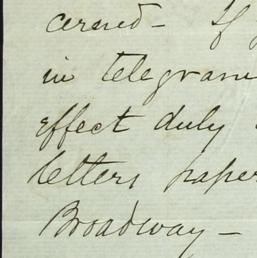 cerned - If
in telegram
effect duly
letters paper
Broadway -